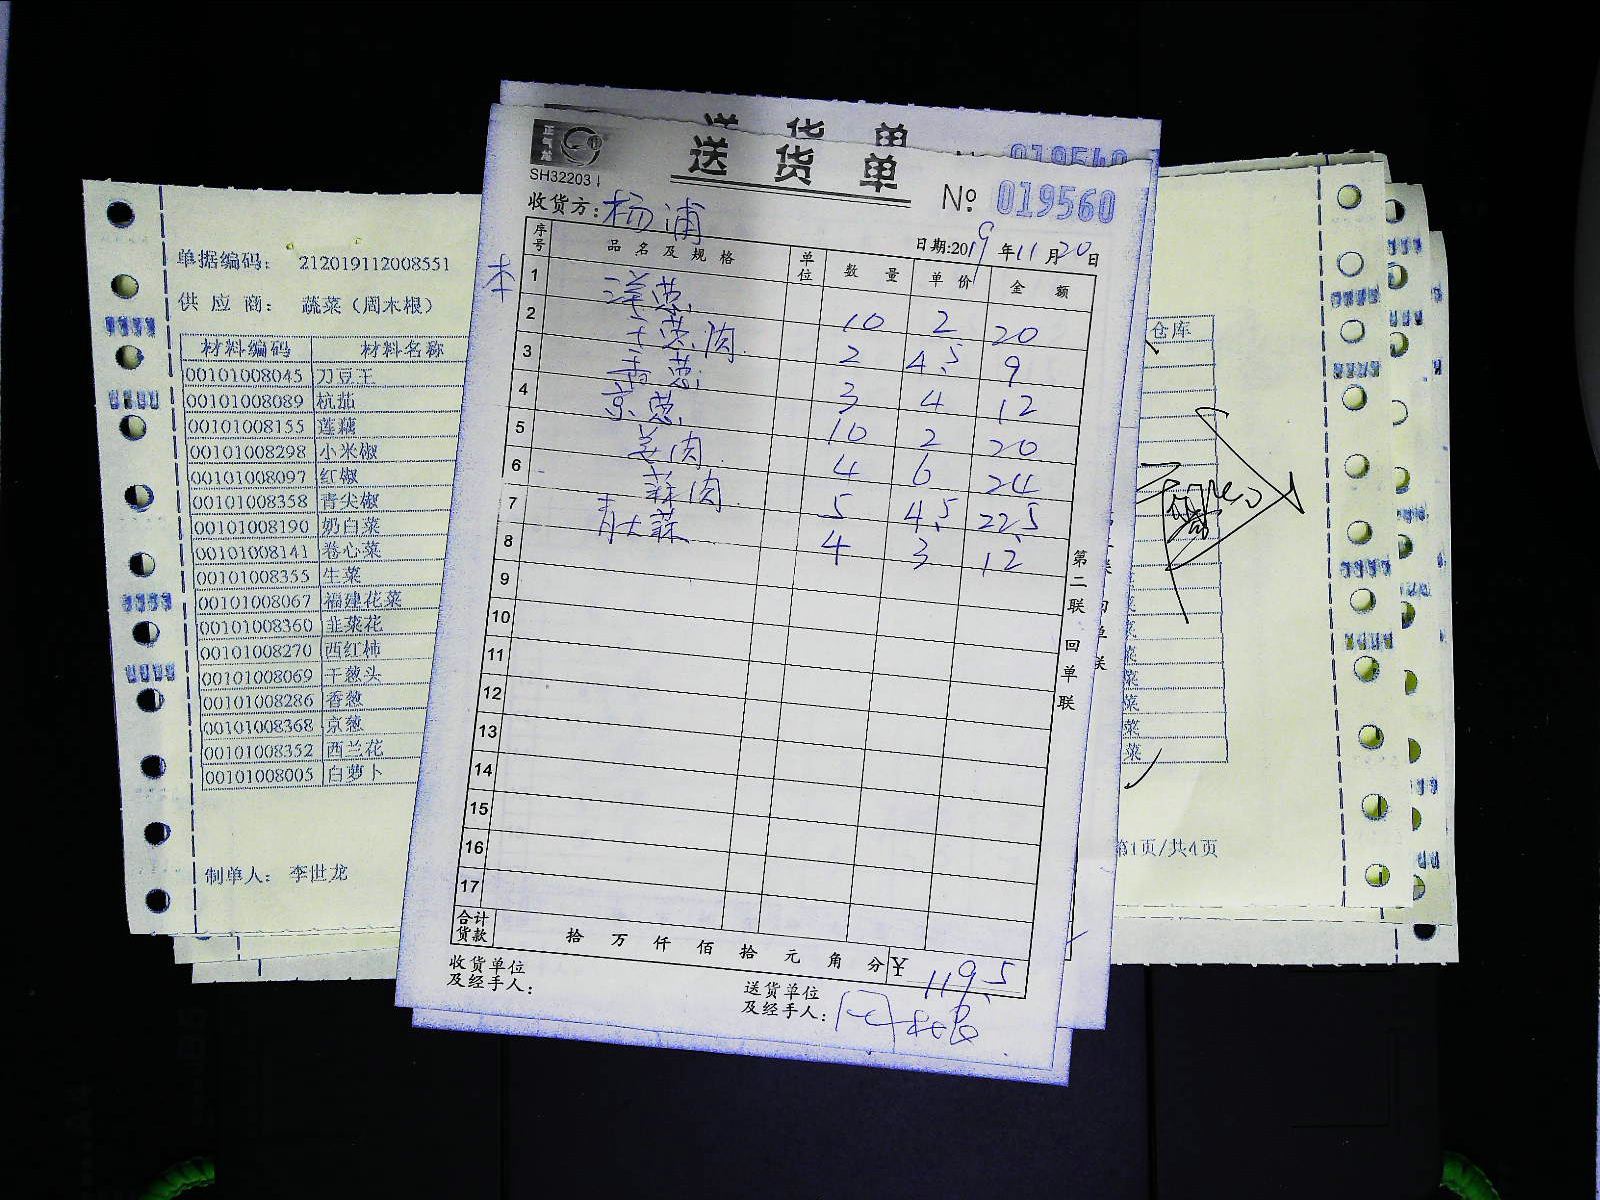 送货单
019540
正气龙
SH32203
送货单
№ 019560
收货方：杨浦
日期:2019年11月20日
序号 品名及规格 单位 数量 单价 金额
本
1 洋葱 10 2 20
2 干葱肉 2 4.5 9
3 香葱 3 4 12
4 京葱 10 2 20
5 姜肉 4 6 24
6 蒜肉 5 4.5 22.5
7 青大蒜 4 3 12
8
9
10
11
12
13
14
15
16
17
合计货款 拾 万 仟 佰 拾 元 角 分 ¥ 119.5
收货单位及经手人：
送货单位及经手人：
第二联 回单联
单据编码： 212019112008551
供 应 商： 蔬菜（周木根）
材料编码 材料名称
00101008045 刀豆王
00101008089 杭茄
00101008155 莲藕
00101008298 小米椒
00101008097 红椒
00101008358 青尖椒
00101008190 奶白菜
00101008141 卷心菜
00101008355 生菜
00101008067 福建花菜
00101008360 韭菜花
00101008270 西红柿
00101008069 干葱头
00101008286 香葱
00101008368 京葱
00101008352 西兰花
00101008005 白萝卜
制单人： 李世龙
仓库
菜
菜
菜
菜
菜
第1页/共4页